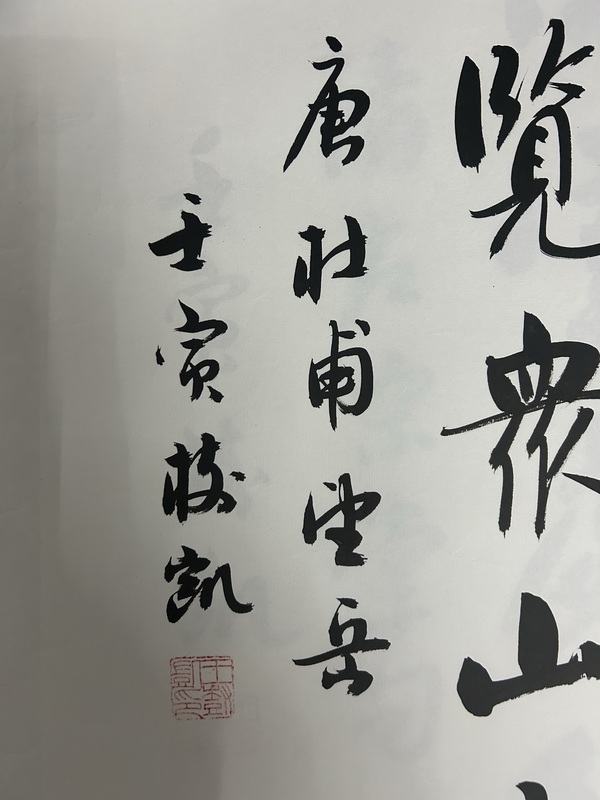 覽衆山
唐杜甫望岳
壬寅凱